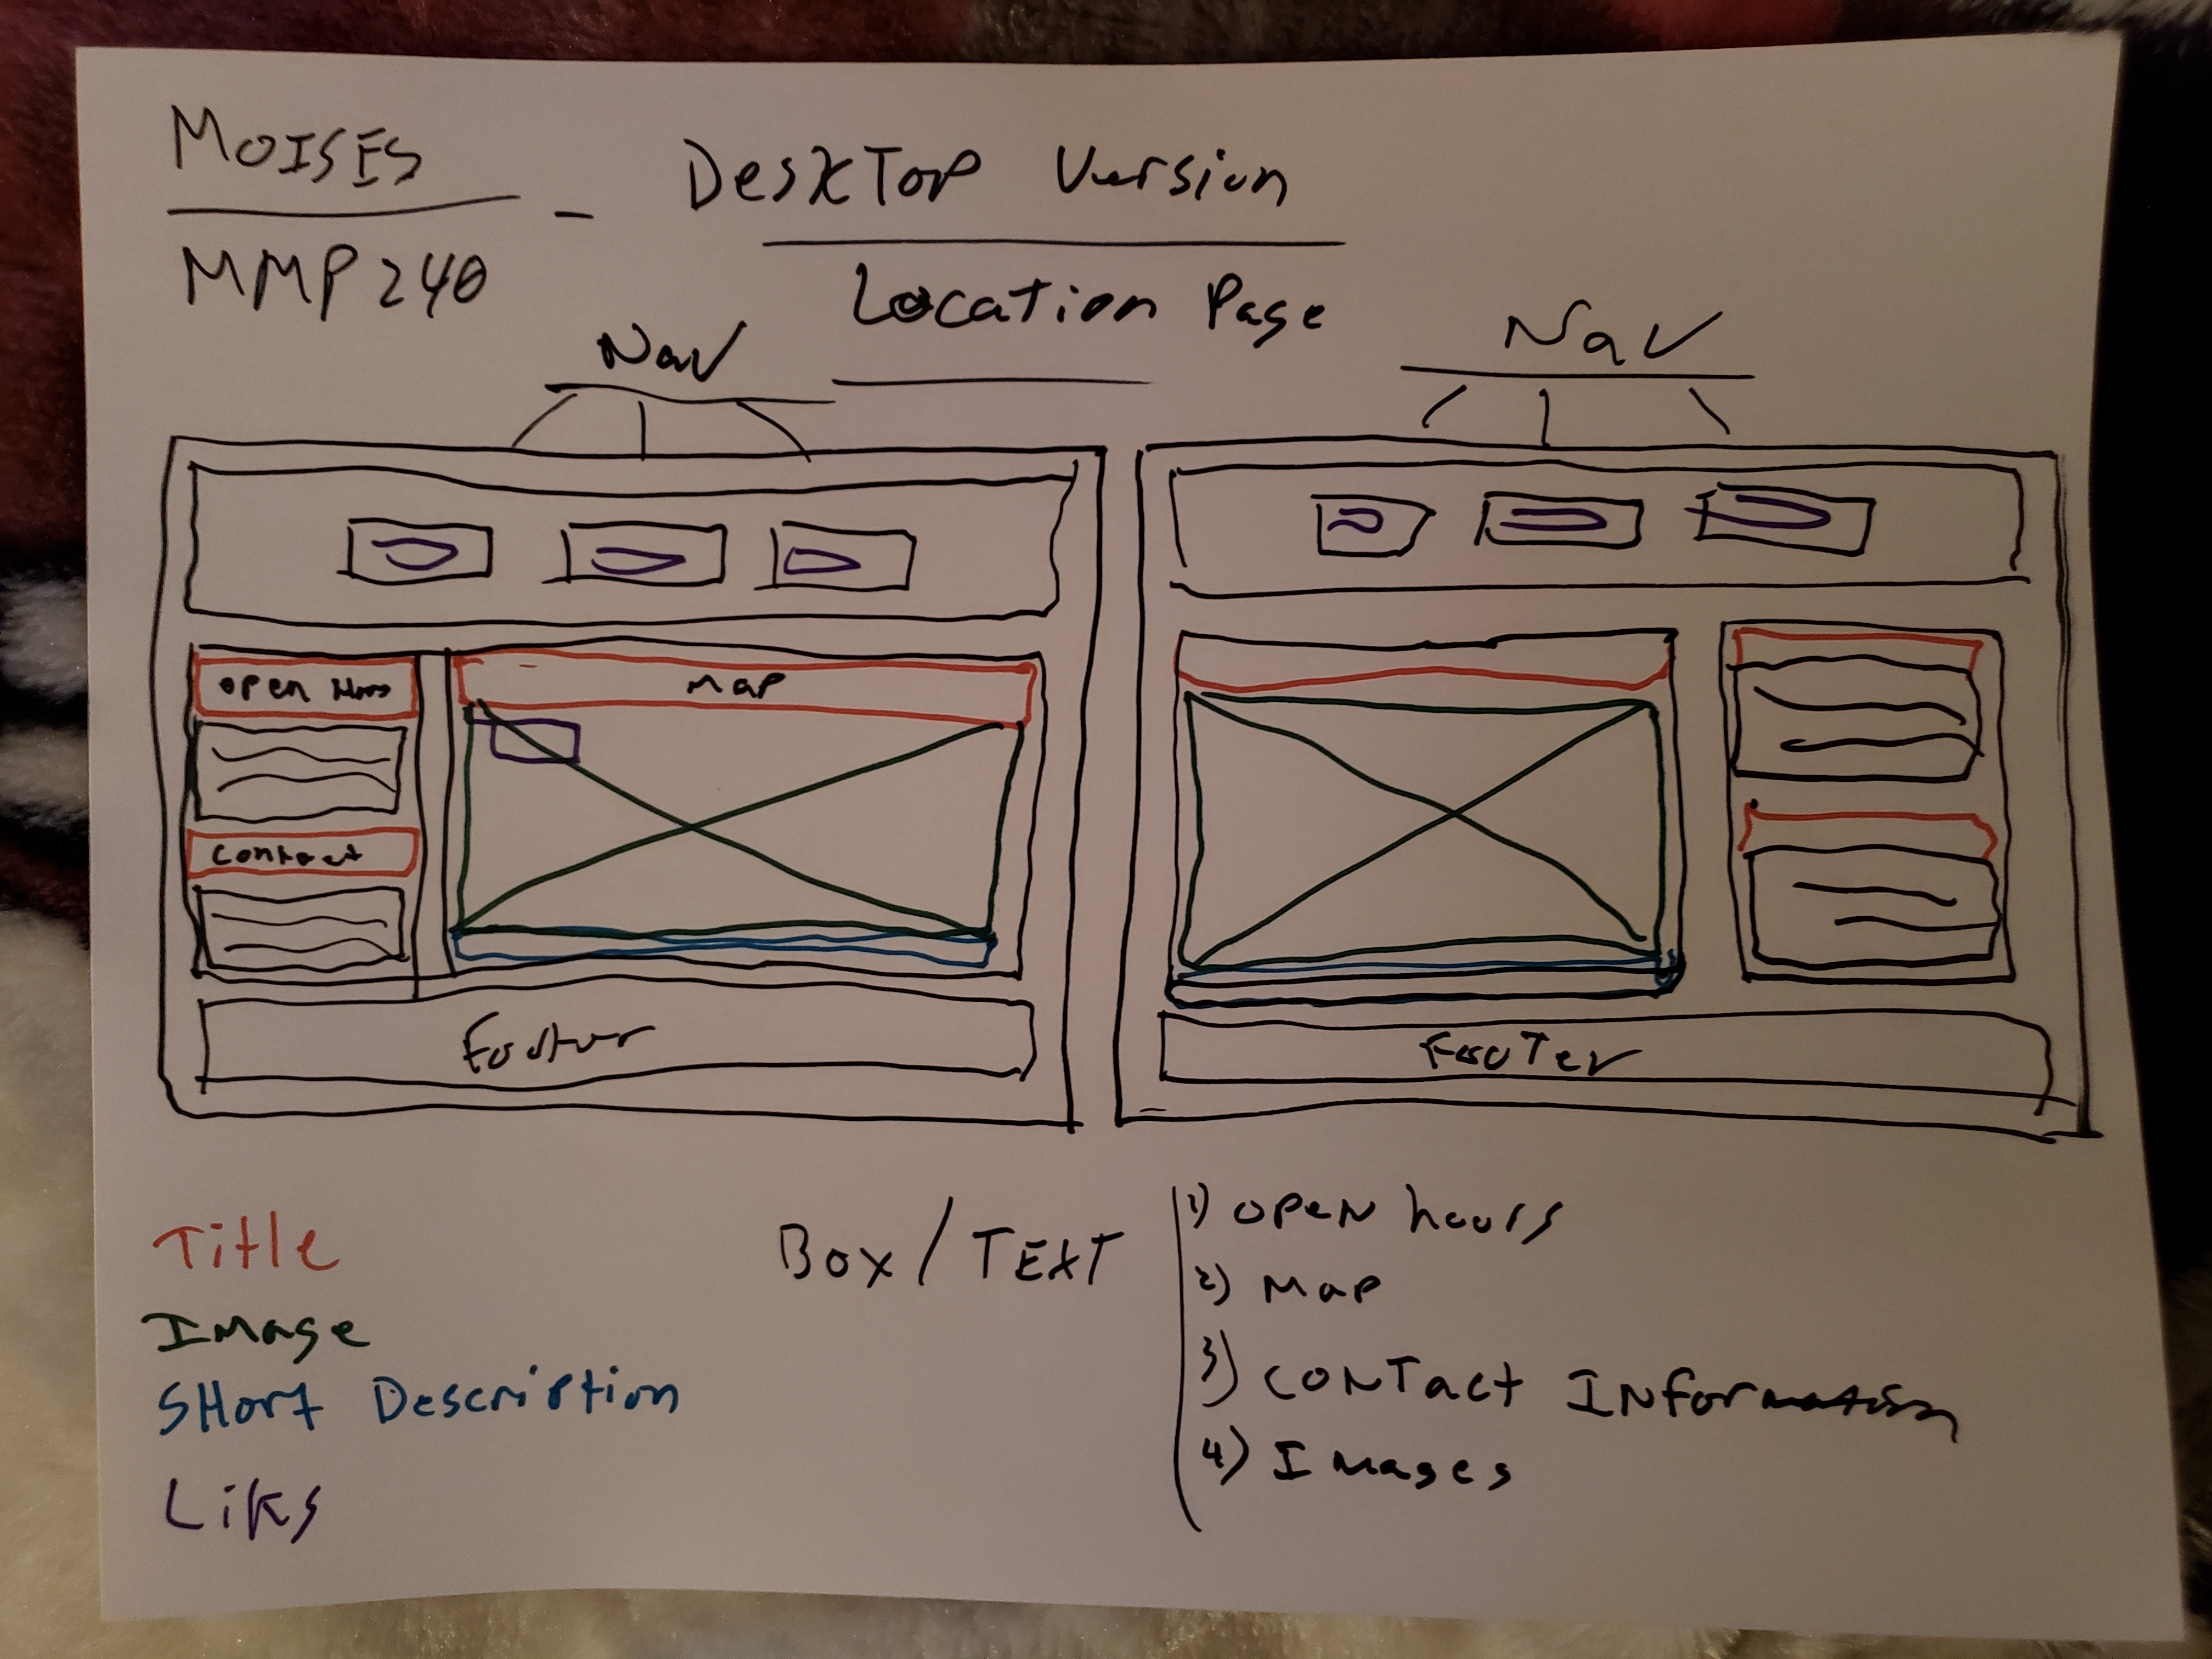 MOISES
MMP240
- DesKTop Version
Location Page
Nav
Nav
open Hors
Map
Contact
Footer
FooTer
Title
Image
SHort Description
Liks
Box / TEXT
1) OPEN hours
2) Map
3) CONTact INformation
4) Images